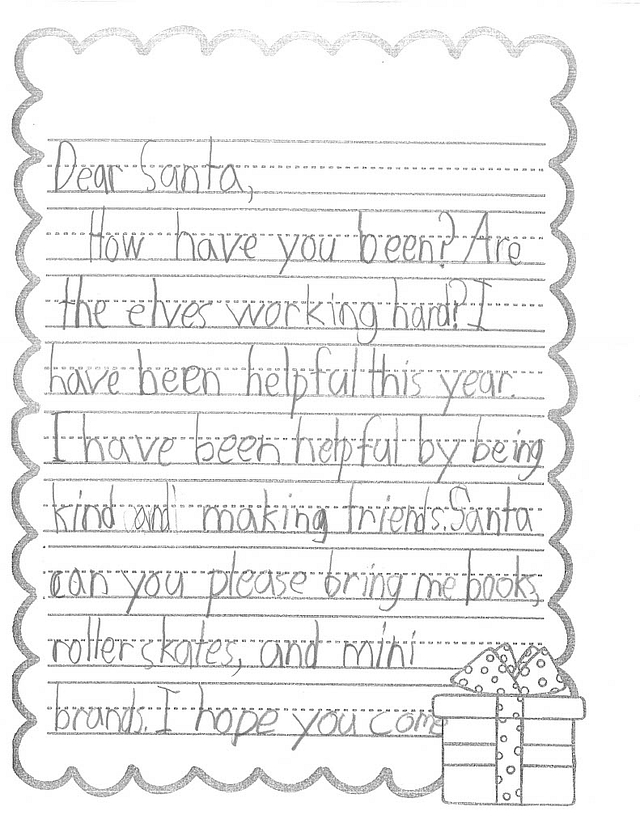 Dear Santa,
How have you been? Are
the elves working hard? I
have been helpful this year.
I have been helpful by being
kind and making friends. Santa
can you please bring me books,
roller skates, and mini
brands. I hope you come